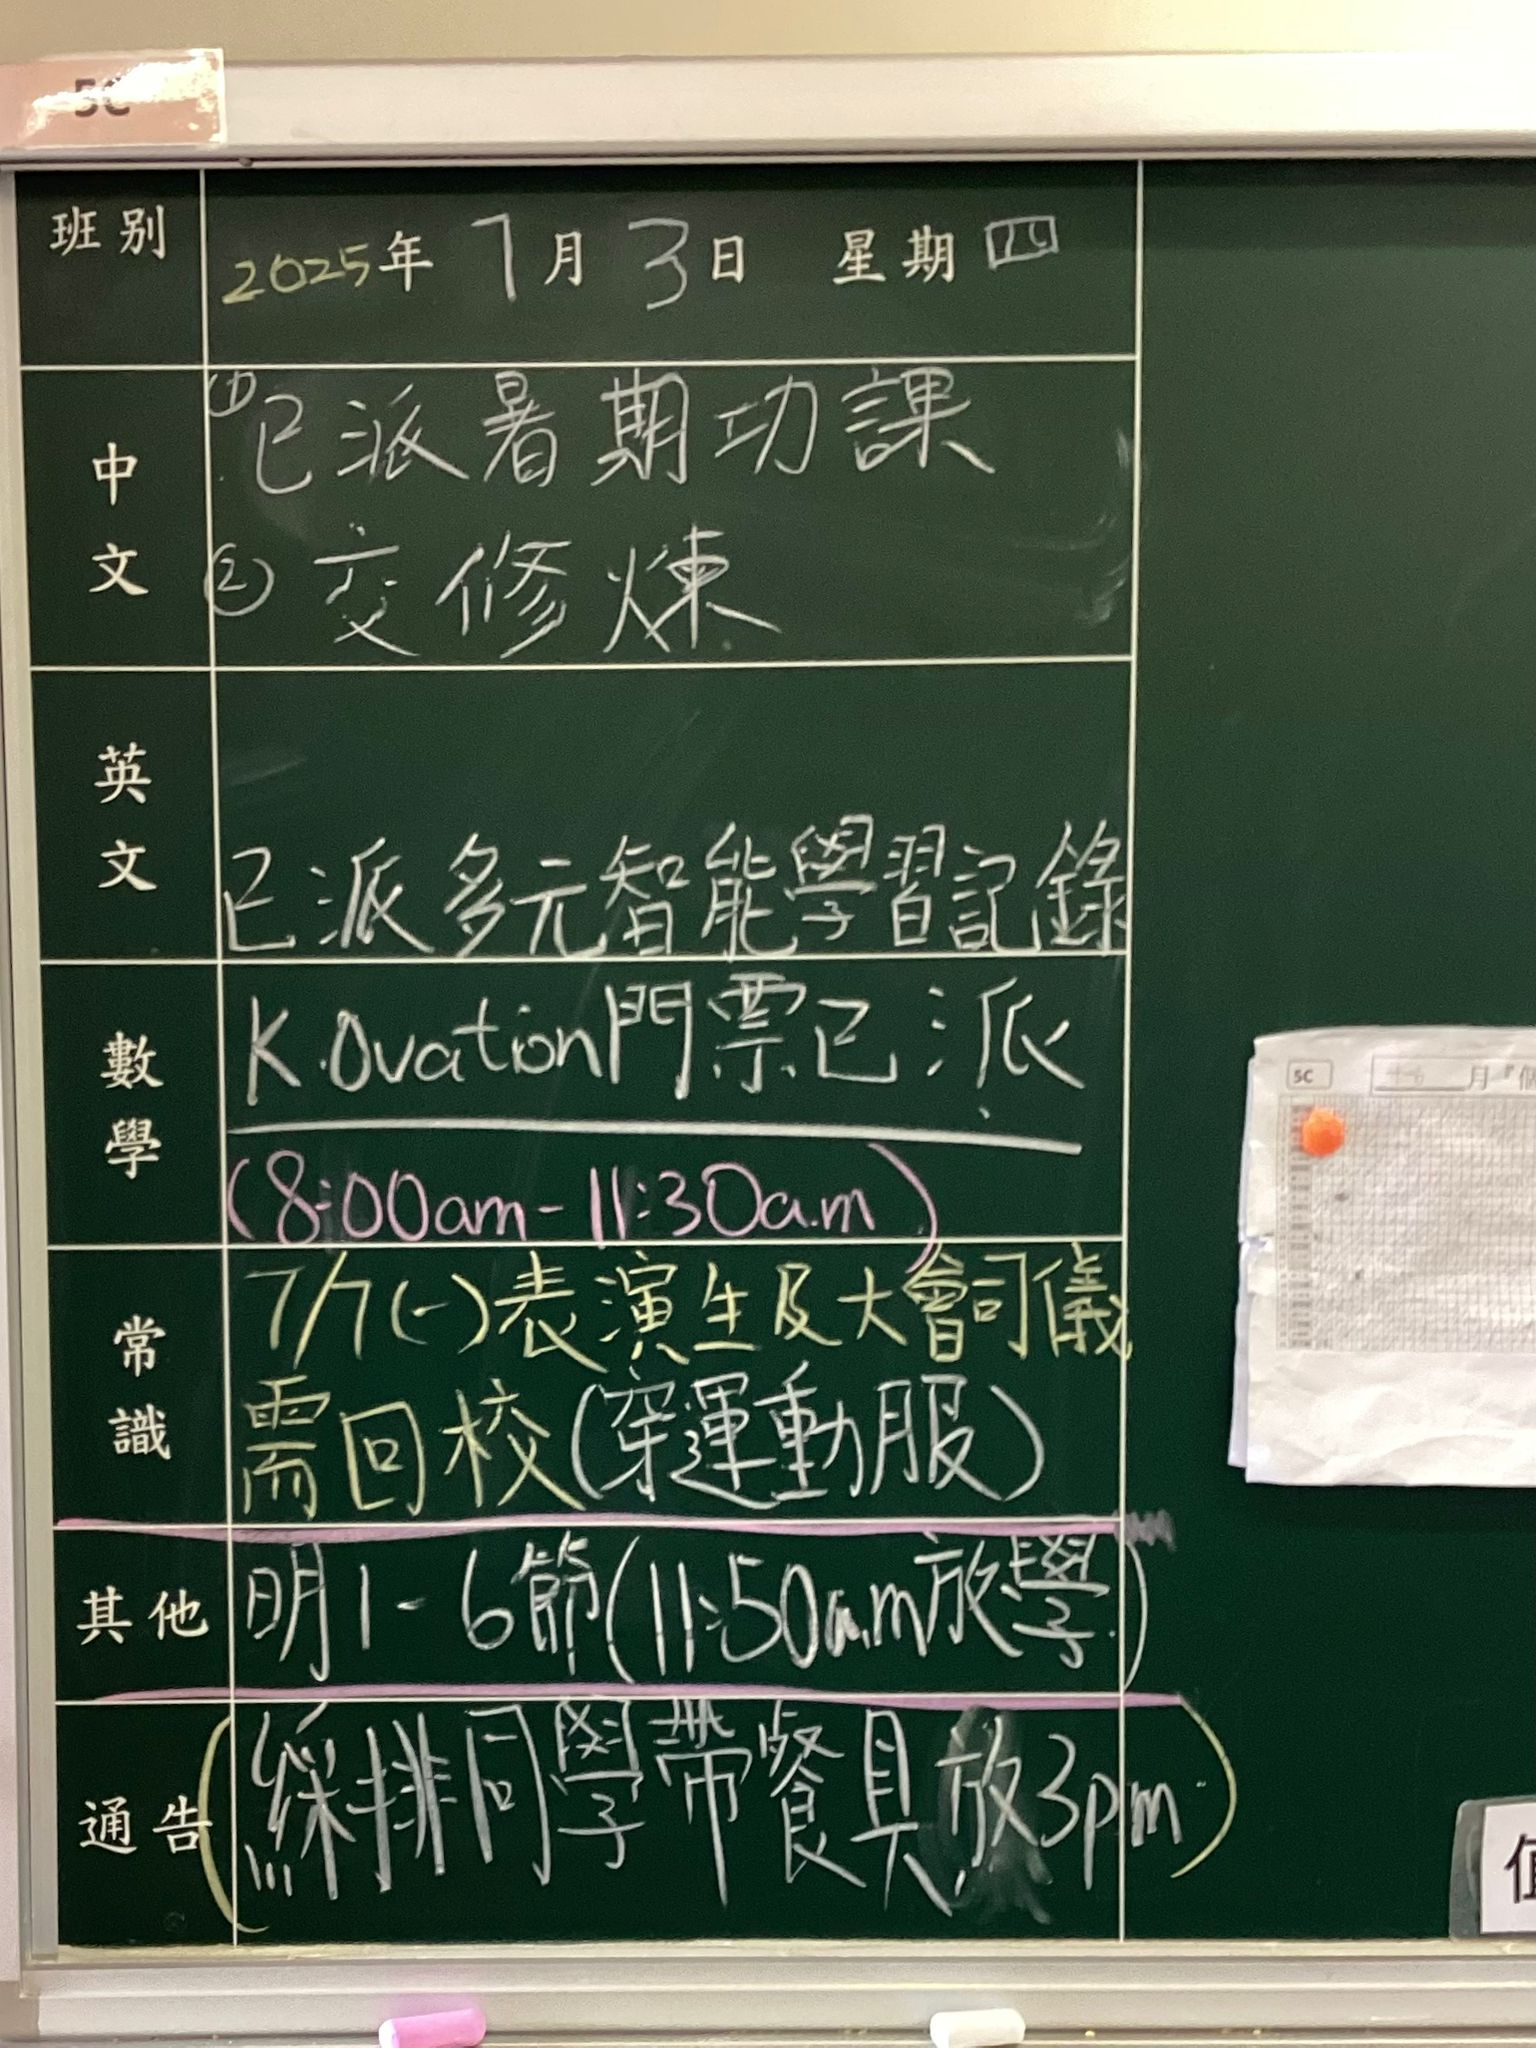 5C
班別
2025年 7月 3日 星期四
中文
① 已派暑期功課
② 交修煉
英文
已派多元智能學習記錄
數學
K.Ovation門票已派
(8:00am-11:30a.m)
常識
7/7(一)表演生及大會司儀
需回校(穿運動服)
其他
明1-6節(11:50a.m放學)
通告
(綵排同學帶餐具放3pm)
5C
月『個
值